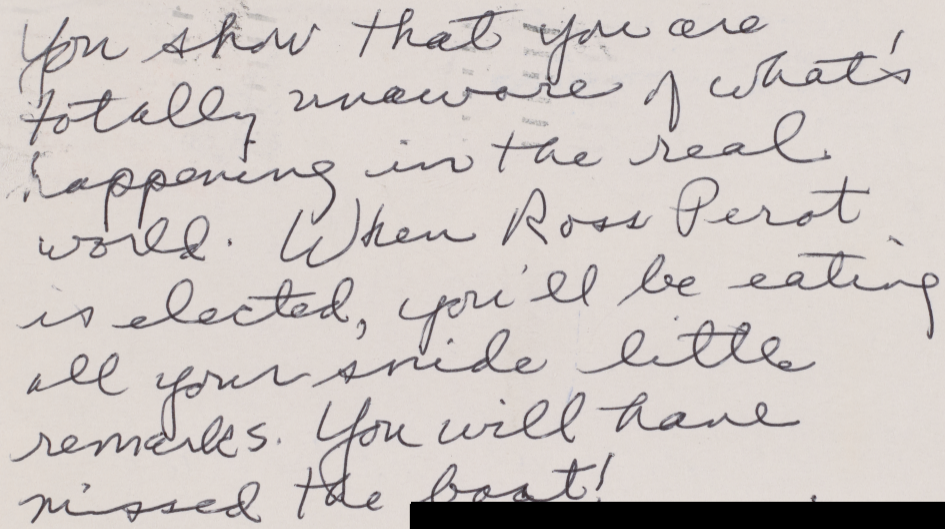 You show that you are
totally unaware of what's
happening in the real
world. When Ross Perot
is elected, you'll be eating
all your snide little
remarks. You will have
missed the boat!